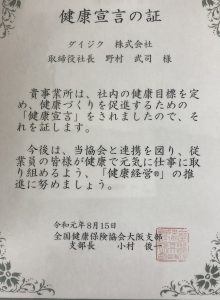 健康宣言の証
ダイジク 株式会社
取締役社長 野村 武司 様
貴事業所は、社内の健康目標を定
め、健康づくりを促進するための
「健康宣言」をされましたので、そ
れを証します。
今後は、当協会と連携を図り、従
業員の皆様が健康で元気に仕事に取
り組めるよう、「健康経営®」の推
進に努めましょう。
令和元年8月15日
全国健康保険協会大阪支部
支部長 小村 俊一